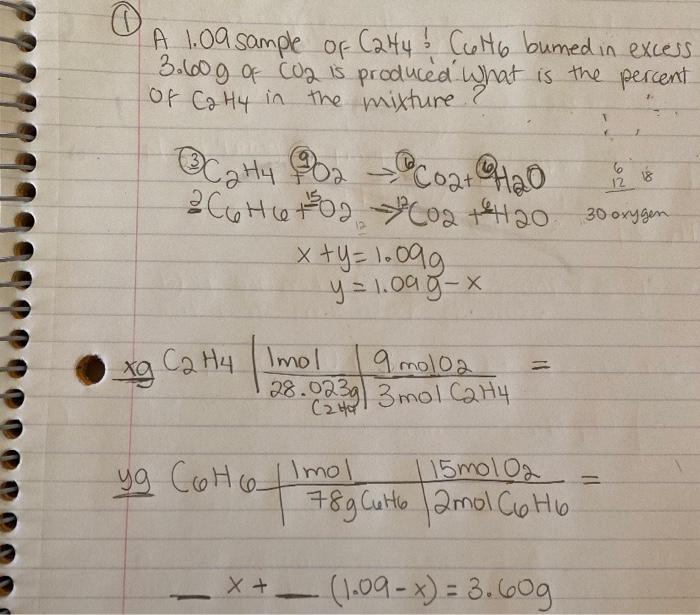 ①
A 1.09 sample of C2H4 & C6H6 burned in excess
3.600g of CO2 is produced. What is the percent
of C2H4 in the mixture?
③C2H4 + ⑨O2 → ⑥CO2 + ⑥H2O
2C6H6 + 15O2 → 12CO2 + 6H2O
6
12 18
30 oxygen
12
x + y = 1.09g
y = 1.09g - x
xg C2H4 | 1mol | 9 mol O2 =
28.023g C2H4 | 3 mol C2H4
yg C6H6 | 1mol | 15 mol O2 =
78g C6H6 | 2mol C6H6
__ x + __ (1.09 - x) = 3.60g